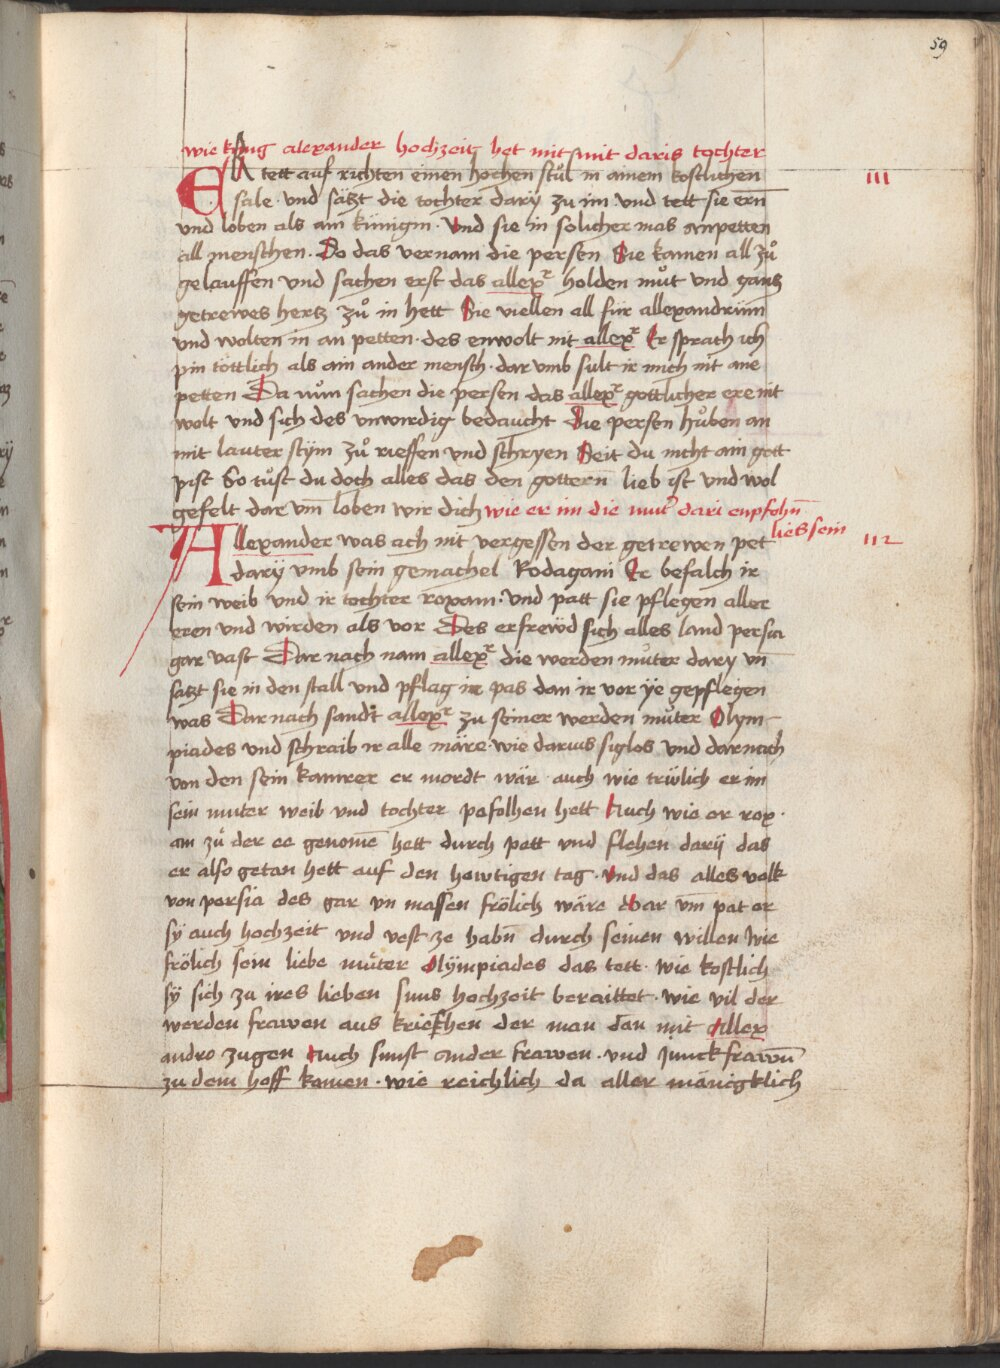 59
wie kung alexander hochzeit het mit mit daris tochter
ER tett auf richten einen hochen stůl in ainem kostlichen
III
sale · und sätzt die tochter darÿ zu im · und tett sie ern̄
und loben als am künigin · Und sie in solicher mas anpetten
all menschen · Do das vernam die persen Sie kamen all zů
gelauffen und sachen erst das allexr̄ holden můt und gantz
getrewes hertz zů in hett Sie viellen all für allexandrum
und wolten in an petten · des enwolt nit allexr̄ Er sprach ich
pin töttlich als ain ander mensch · dar umb sult ir mich nit ane
petten Da nům sachen die persen das allexr̄ gottlicher ere nit
wolt und sich des unwirdig bedaucht Die persen hůben an
mit lauter stÿm zů rieffen und schryen Seit du nicht ain gott
pist So tůst du doch alles das den gottern̄ lieb ist und wol
gefelt dar um̄ loben wir dich wie er im die mut͛ dari enpfohn̄
lies sein
Allexander was ach nit vergessen der getrewen pet
112
darÿ umb sein gemachel Rodagani Er befalch ir
sein weib und ir tochter roxam · und patt sie pflegen aller
eren und wirden als vor Des erfrewd sich alles land persia
gar vast Dar nach nam allexr̄ die werden můter dary un̄
satzt sie in den stall und pflag ir pas dan ir vor ÿe gepflegen
was Dar nach sandt allexr̄ zu seiner werden můter Olym-
piades und schraib ir alle märe · wie darius siglos und darnach
von den sein kamrer er mordt wär · auch wie trůlich er im
sein muter weib und tochter pefolhen hett Auch wie er rox ·
am zů der ee genomē hett durch pett und flehen darÿ das
er also getan hett auf den hewtigen tag · Und das alles volk
von persia des gar un massen frölich wäre dar um̄ pat er
sÿ auch hochzeit und vest ze habn̄ durch seinen willen Wie
frölich sein liebe můter Olÿmpiades das tett · wie kostlich
sÿ sich zu ires lieben suns hochzeit beraittet · wie vil der
werden frawen aus kriechen der man dan mit Allex
andro zugen Auch sunst ander frawen · und junckfrawn̄
zu dem hoff kamen · wie reichlich da aller mänigklich